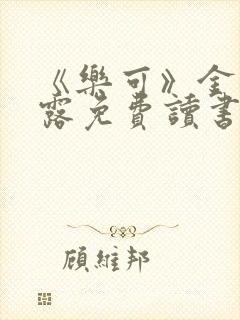 《樂可》金
露免費讀書
顧維邦